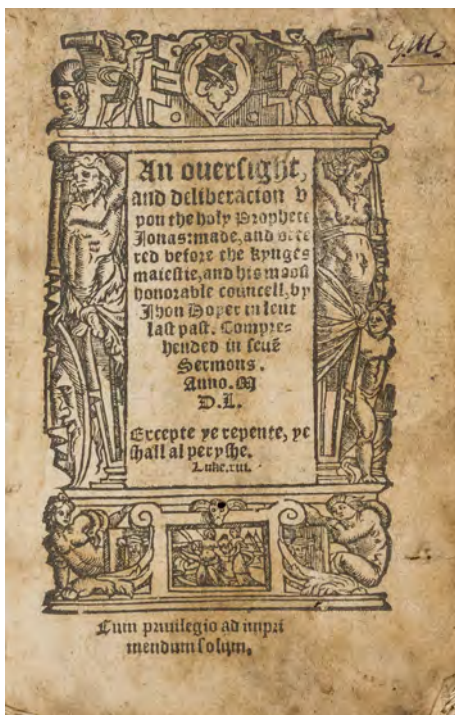 G.M.
2
An ouersight,
and deliberacion v
pon the holy Prophete
Jonas: made, and vtte
red before the kynges
maiestie, and his moost
honorable councell, by
Jhon Hoper in lent
last past. Compre=
hended in seuẽ
Sermons.
Anno. M
D.L.
Excepte ye repente, ye
shall al peryshe.
Luke.xiii.
Cum priuilegio ad impri
mendum solum.